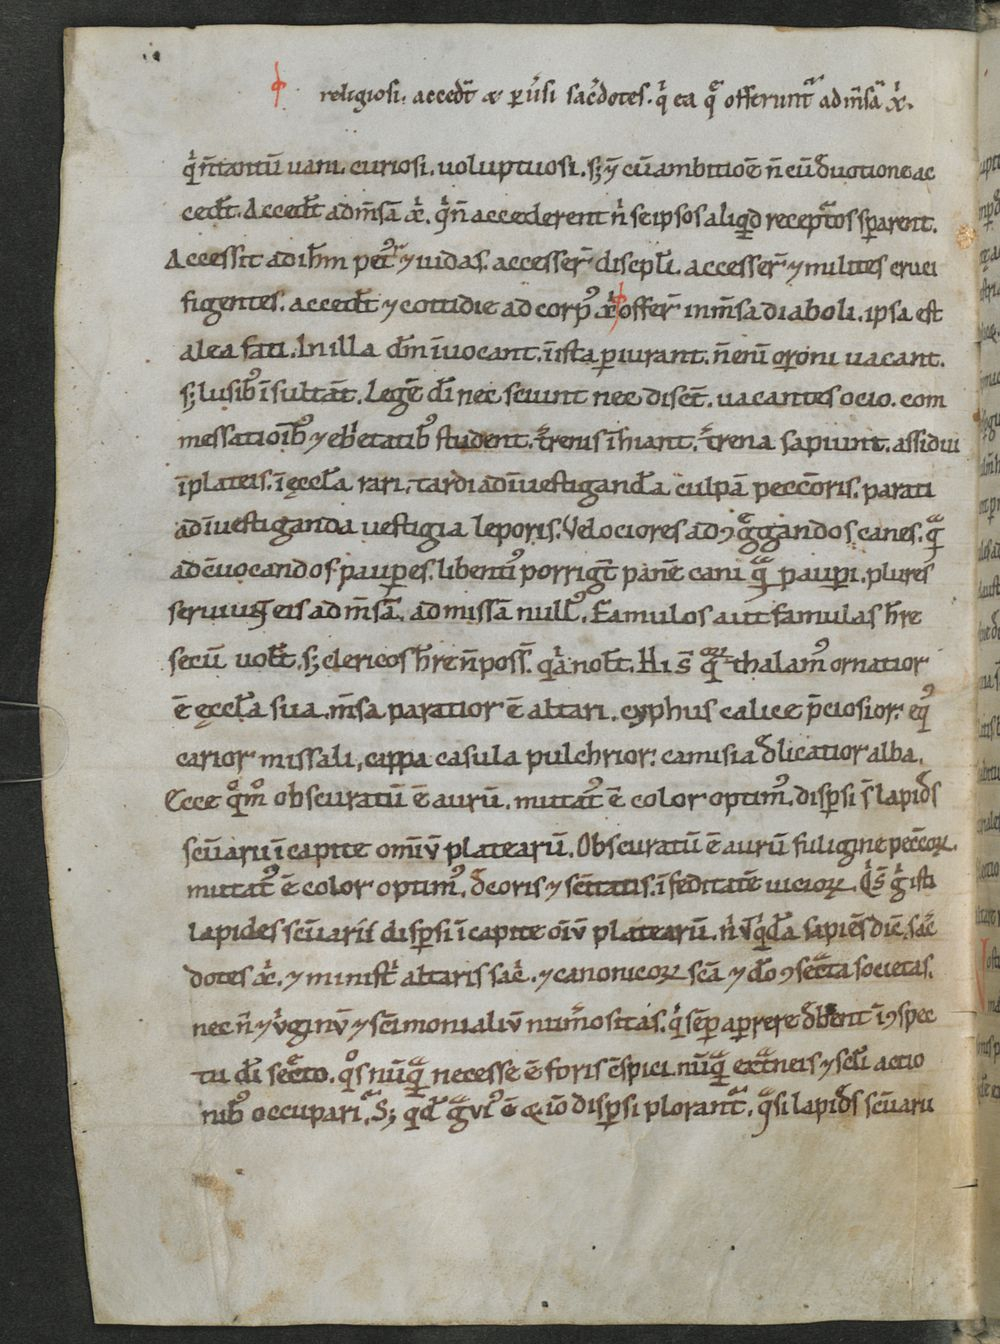 religiosi. accedt̄ & ꝑuͥsi sac̄dotes. qͥ ea qͣ offerunt̄ᷓ ad m̄sā xͥ.
qͥ n̄ tantū uani. curiosi. uoluptuosi. s; ⁊ cū ambitiōe n̄ cū deuotione ac
cedt̄. Accedt̄ ad m̄sā xͥ. qͥ n̄ accederent nͥ se ipsos aliqͥd receptᷓos sꝑarent.
Accessit ad ih̄m petrᷣ ⁊ iudas. accesser̄ discipl̄i. accesser̄ ⁊ milites cruci
figentes. accedt̄ ⁊ cottidie ad corpꝰ xͥ offer̄ in m̄sa diaboli. ipsa est
alea fati. In illa dm̄ īuocant. ī ista ꝑiurant. n̄ enī oroni uacant.
s; lusibꝰ īsultāt. Legē dī nec sciunt nec discēt. uacantes ocio. com
messatioībꝰ ⁊ ebͥetatibꝰ student. t̄renis īhiant. t̄rena sapiunt. assidui
ī plateis. ī ęccl̄a rari. tardi ad īuestiganda culpā peccōris. parati
ad īuestiganda uestigia leporis. Velociores ad ꝯgͤgandos canes. qͣ
ad ꝯuocandos pauꝑes. libentiꝰ porrigt̄ panē cani qͣ pauꝑi. plures
seruiūt eis ad m̄sā. ad missā nullꝰ. Famulos aut famulas h̄re
secū uolt̄. s; clericos h̄re n̄ poss̄. qͥa nolt̄. Hi s̄ qͦꝝ thalamꝰ ornatior
ē ęccl̄a sua. m̄sa paratior ē altari. cyphus calice p̄ciosior. eqͥꝰ
carior missali, cappa casula pulchrior. camisia delicatior alba.
Ecce qͦmͦ obscuratū ē aurū. mutatꝰ ē color optimꝰ. disꝑsi s̄ lapides
scūaru ī capite omīū platearū. Obscuratū ē aurū fuligine peccōꝝ.
mutatꝰ ē color optimꝰ. decoris ⁊ sc̄itatis. ī feditatē uicioꝝ. Qͥ s̄ gͥ isti
lapides scūarii disꝑsi ī capite oīū platearū. nͥ ut̄ qͥda sapiēs dic̄. sac̄
dotes xͥ. ⁊ ministrͥ altaris sac̄. ⁊ canonicoꝝ scā ⁊ dō ꝯsecrᷓta societas.
nec n̄ ⁊ uͥginū ⁊ scīmonialiū num̄ositas. qͥ sēꝑ aꝑrere debent ī ꝯspec
tu dī secrͤto. qͦs nūqͣ necesse ē foris ꝯspici nūqͣ extͣneis ⁊ scl̄i actio
nibꝰ occupari. S; qd̄ gͣuiꝰ ē & iō disꝑsi plorantᷓ. qͣsi lapides scūaru